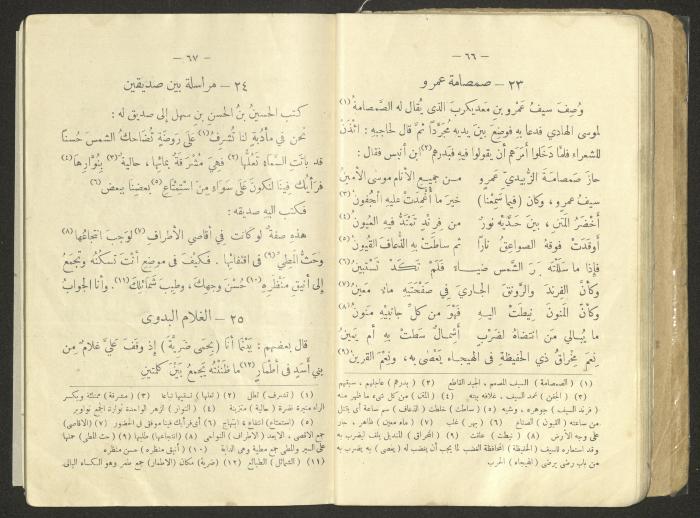 — ٦٦ —
٢٣ – صمصامة عمرو
وُصِفَ سيفُ عَمْرِو بن معديكربَ الذى يُقال له الصَّمصامةُ (١)
لموسى الهادي فدعا به فوُضِعَ بينَ يديه مُجرَّداً ثمَّ قال لحاجبِه : ائْذَنْ
للشعراء فلمَّا دَخَلوا أمَرَهم أن يقولوا فيه فبَدَرهم (٢) ابن أنيس فقال :
حازَ صَمصامَةَ الزُّبيديِّ عَمرٍو من جميعِ الأنامِ موسى الأمينُ
سيفُ عمرٍو، وكان (فيما سَمِعْنا) خيرَ ما أُغْمِدَتْ عليهِ الجُفُونُ (٣)
أخضَرُ المَتْنِ ، بينَ حَدَّيْهِ نورٌ من فِرِنْدٍ تَمتدُّ فيه العُيُونُ (٤)
أوقَدَتْ فوقَهُ الصواعِقُ ناراً ثم ساطَتْ بهِ الذُّعافَ القُيُونُ (٥)
فإذا ما سَلَلْتَه بَهَرَ الشَّمسَ ضِياءً فلَمْ تَكَدْ تَسْتَبينُ (٦)
وكأنَّ الفِرِنْدَ والرَّونَقَ الجاريَ في صَفْحَتَيْهِ ماءٌ مَعينُ (٧)
وكأنَّ المَنونَ نِيطَتْ اليهِ فَهْوَ من كلِّ جانِبَيْهِ مَنونُ (٨)
ما يُبالي مَنِ انتَضاهُ لضَرْبٍ أشِمالٌ سَطَتْ بهِ أم يَمينُ
نِعْمَ مِخْراقُ ذي الحَفيظةِ في الهيجاء يَعْصَى به، ونِعْمَ القَرينُ (٩)
(١) (الصمصامة) السيف المصمم . الجيد القاطع (٢) (بدرهم) عاجلهم ، سبقهم
(٣) (الجفن) غمد السيف (٤) (المتن) من كل شيء ما ظهر منه
(فرند السيف) جوهره ، وشيه (٥) (ساطت) خلطت (الذعاف) سم ساعة أى يقتل
من ساعته (القيون) الصناع (٦) بهر : غلب (٧) (ماء معين) ظاهر ، جار
على وجه الأرض (٨) نيطت : علقت (٩) (المخراق) المنديل يلف ليضرب به
وقد استعاره للسيف (الحفيظة) المحافظة الغضب لما يجب أن يغضب له (يعصى) به يضرب به
من باب رضى يرضى (الهيجاء) الحرب
— ٦٧ —
٢٤ – مراسلة بين صديقين
كتب الحسينُ بنُ الحسنِ بنِ سهلٍ إلى صديقٍ له :
نحن في مأدُبةٍ لنا تُشرِفُ (١) عَلَى رَوضَةٍ تُضاحِكُ الشمسَ حُسناً
قد باتَتِ السَّماءُ تَعُلُّها (٢) فهيَ مُشْرِقَةٌ بمائِها ، حاليةٌ (٣) بِنُوَّارِها (٤)
فرأيُكَ فِينا لنكونَ عَلَى سَواءٍ مِنَ اسْتِمْتاعِ (٥) بعضِنا ببعضٍ (٦)
فكتب اليه صديقه :
هذِهِ صِفةٌ لو كانت في أقاصي الأطرافِ (٧) لَوَجَبَ انتجاعُها (٨)
وحَثُّ المَطِيِّ (٩) فى ابتغائِها . فكَيْفَ فى موضِعٍ أنتَ تَسكُنُه وتَجمعُ
إلى أنيقِ مَنظَرِه (١٠) حُسْنَ وجهِكَ ، وطِيبَ شَمائلِكَ (١١) . وأنا الجوابُ
٢٥ – الغلام البدوى
قال بعضُهم : بَيْنَما أنا (بِحِمَى ضَرِيَّةَ) إذ وقفَ عَلَيَّ غلامٌ من
بنى أسَدٍ فى أطمارٍ (١٢) ما ظَنَنْتُهُ يَجمعُ بَيْنَ كلمتينِ
(١) (تشرف) تطل (٢) (تعلها) تسقيها تباعا (٣) (مشرقة) ممتلئة وبكسر
الراء منيرة نضرة (حالية) متزينة (٤) (النوار) الزهر الواحدة نوارة الجمع نواوير
(٥) (استمتاع) انتفاع ، ابتهاج (٦) أى فرأيك فينا موفق فى الحضور (٧) (الأقاصى)
جمع الأقصى . الأبعد (الأطراف) النواحى (٨) (انتجاعها) طلبها (٩) (حث المطى) حملها
على السير والمطى جمع مطية وهى الدابة (١٠) (أنيق منظره) حسن منظره
(١١) (الشمائل) الطبائع (١٢) (ضرية) مكان (الأطمار) جمع طمر وهو الكساء البالى